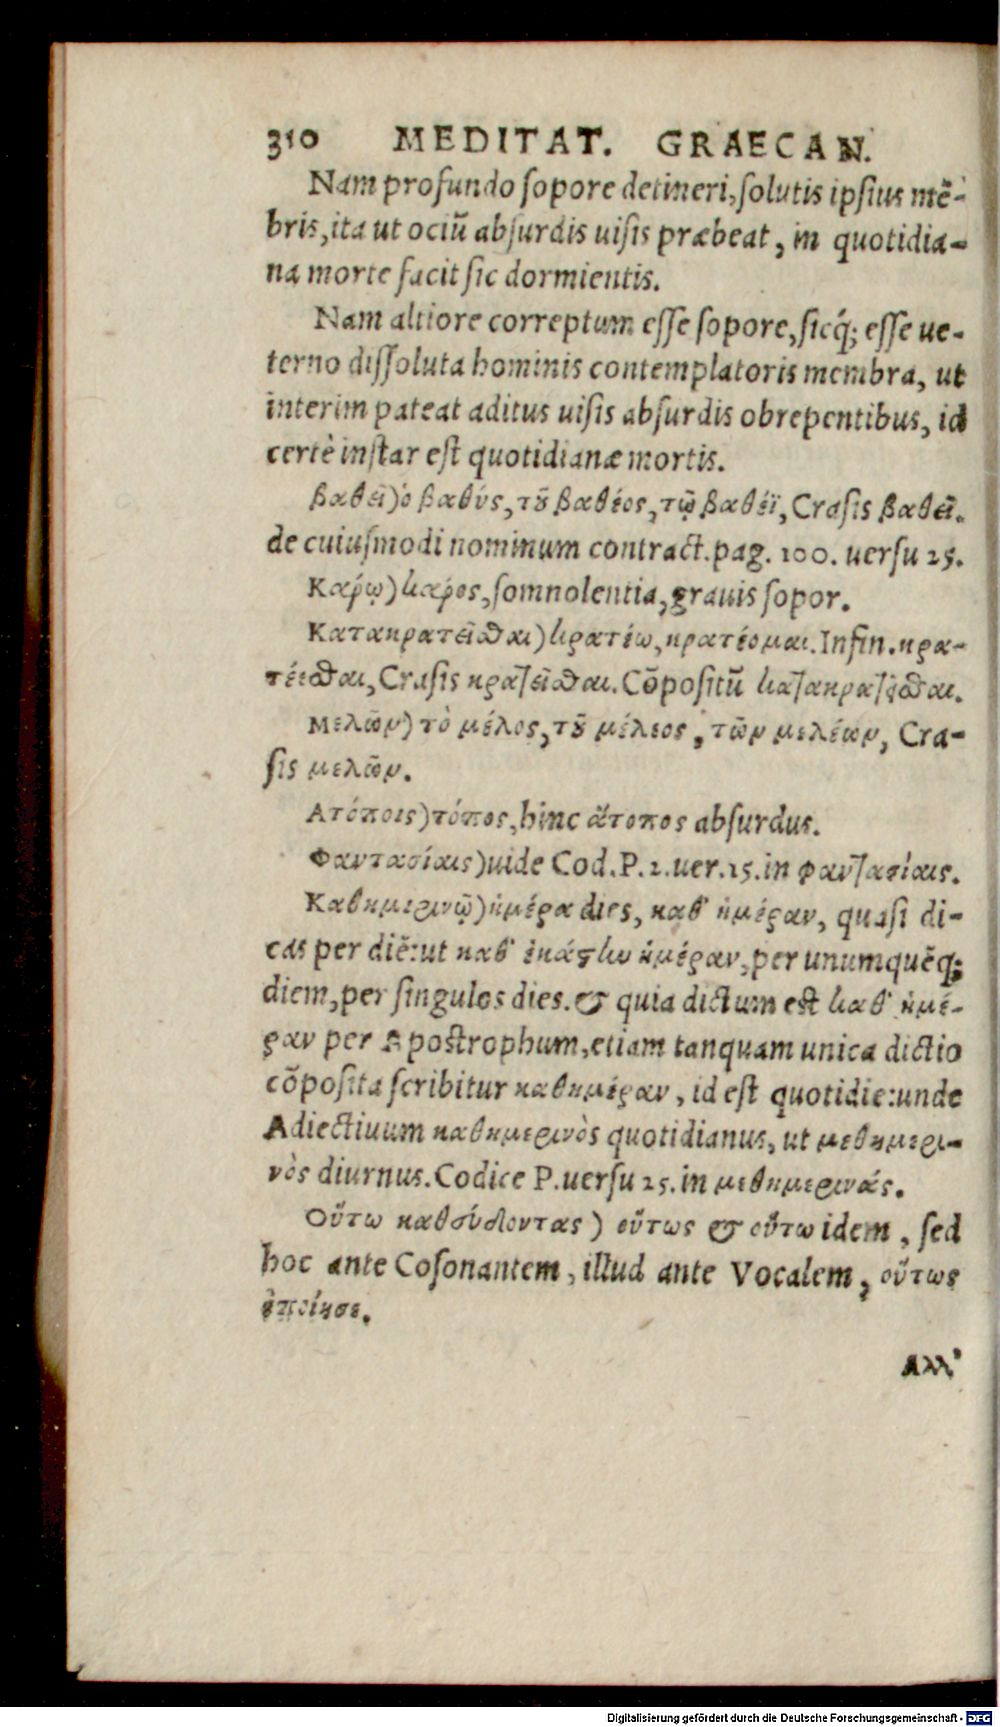 310 MEDITAT. GRAECAN.
Nam profundo sopore detineri, solutis ipsius mẽ-
bris, ita ut ociũ absurdis uisis præbeat, in quotidia-
na morte facit sic dormientis.
Nam altiore correptum esse sopore, sicq́; esse ue-
terno dissoluta hominis contemplatoris membra, ut
interim pateat aditus uisis absurdis obrepentibus, id
certè instar est quotidianæ mortis.
βαθεῖ) ὁ βαθύς, τȣ͂ βαθέος, τῷ βαθέϊ, Crasis βαθεῖ.
de cuiusmodi nominum contract. pag. 100. uersu 25.
Κάρῳ) κάρος, somnolentia, grauis sopor.
Κατακρατεῖσθαι) κρατέω, κρατέομαι. Infin. κρα-
τέεσθαι, Crasis κρατεῖσθαι. Cõpositũ κατακρατεῖσθαι.
Μελῶν) τὸ μέλος, τȣ͂ μέλεος, τῶν μελέων, Cra-
sis μελῶν.
Ατόποις) τόπος, hinc ἄτοπος absurdus.
Φαντασίαις) uide Cod. P. 2. uer. 15. in φαντασίαις.
Καθημερινῷ) ἡμέρα dies, καθ' ἡμέραν, quasi di-
cas per diẽ: ut καθ' ἑκάστην ἡμέραν, per unumquẽq;
diem, per singulos dies. & quia dictum est καθ' ἡμέ-
ραν per Apostrophum, etiam tanquam unica dictio
cõposita scribitur καθημέραν, id est quotidie: unde
Adiectiuum καθημερινὸς quotidianus, ut μεθημερι-
νὸς diurnus. Codice P. uersu 25. in μεθημερινάς.
Οὕτω καθεύδοντας) οὕτως & οὕτω idem, sed
hoc ante Cosonantem, illud ante Vocalem, οὕτως
ἐποίησε.
Αλλ'
Digitalisierung gefördert durch die Deutsche Forschungsgemeinschaft - DFG